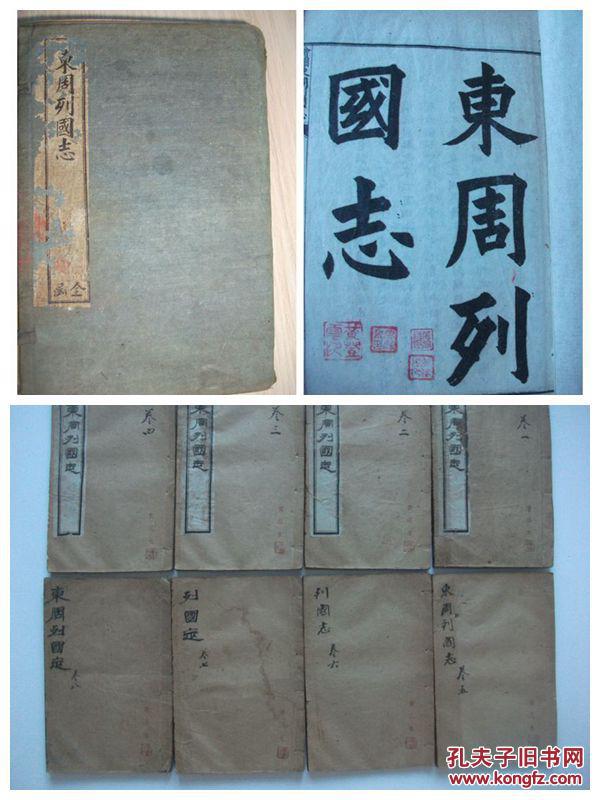 東周列國志
全函
東周列
國志
卷一
東周列國志
卷二
東周列國志
卷三
東周列國志
卷四
東周列國志
東周列國志
卷五
列國志
卷六
列國志
卷七
東周列國志
卷八
孔夫子旧书网
www.kongfz.com